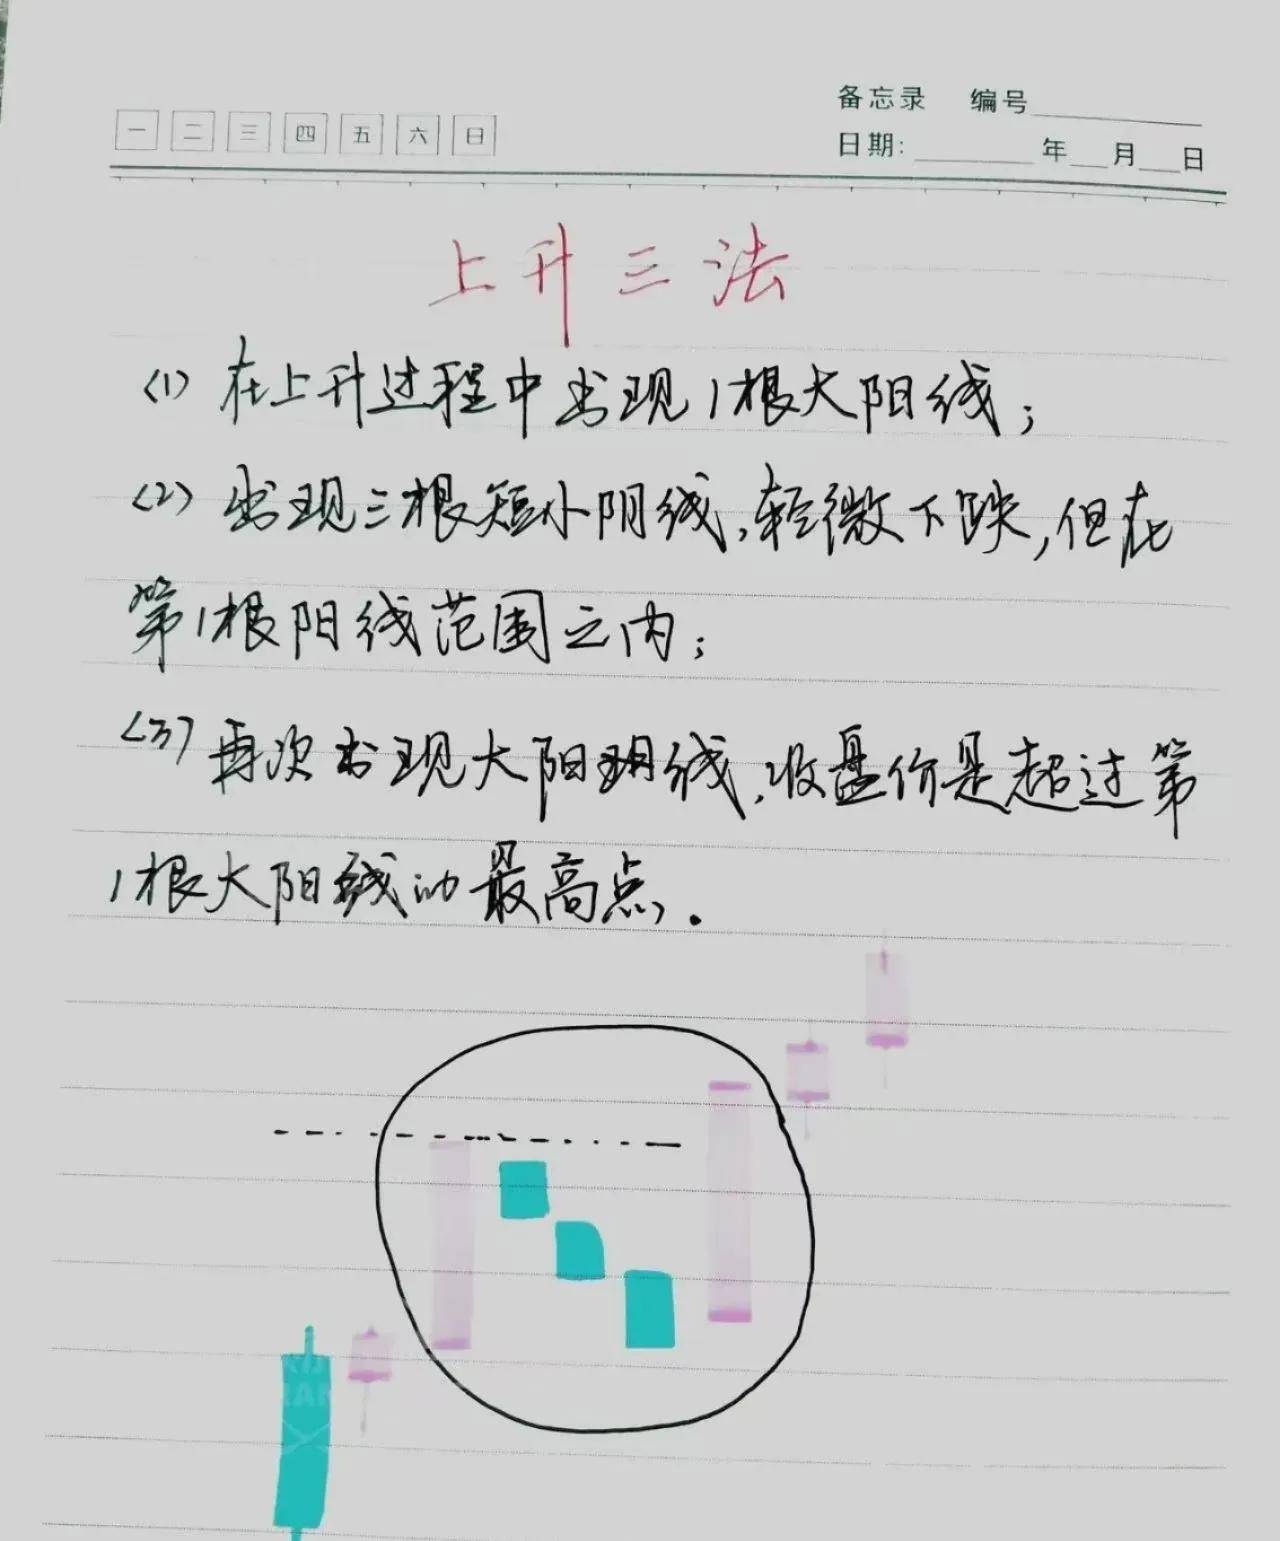 备忘录 编号
一 二 三 四 五 六 日
日期: 年 月 日
上升三法
(1) 在上升过程中出现1根大阳线;
(2) 出现三根短小阴线,轻微下跌,但在
第1根阳线范围之内;
(3) 再次出现大阳线,收盘价是超过第
1根大阳线的最高点.